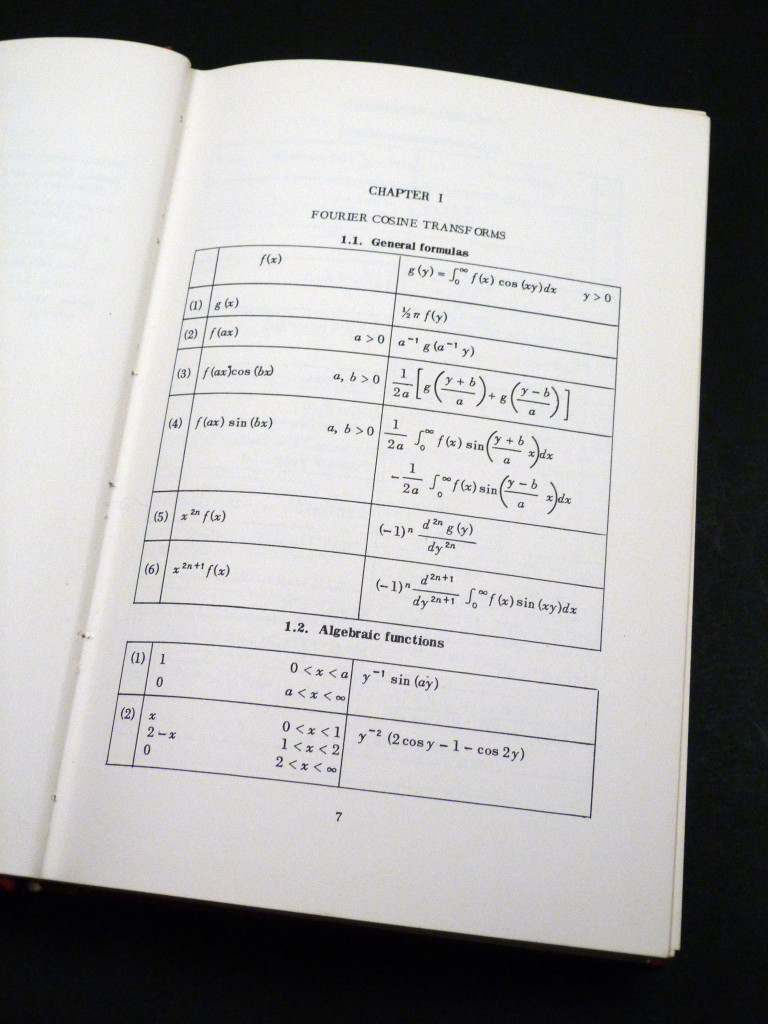 CHAPTER I
FOURIER COSINE TRANSFORMS
1.1. General formulas
f(x) g(y) = ∫₀^∞ f(x) cos (xy) dx y > 0
(1) g(x) ½ π f(y)
(2) f(ax) a > 0 a⁻¹ g(a⁻¹ y)
(3) f(ax)cos (bx) a, b > 0 1/2a [g((y + b)/a) + g((y − b)/a)]
(4) f(ax) sin (bx) a, b > 0 1/2a ∫₀^∞ f(x) sin((y + b)/a x)dx
− 1/2a ∫₀^∞ f(x) sin((y − b)/a x)dx
(5) x²ⁿ f(x) (−1)ⁿ d²ⁿ g(y)/dy²ⁿ
(6) x²ⁿ⁺¹ f(x) (−1)ⁿ d²ⁿ⁺¹/dy²ⁿ⁺¹ ∫₀^∞ f(x) sin (xy)dx
1.2. Algebraic functions
(1) 1 0 < x < a y⁻¹ sin (ay)
0 a < x < ∞
(2) x 0 < x < 1 y⁻² (2 cos y − 1 − cos 2y)
2 − x 1 < x < 2
0 2 < x < ∞
7